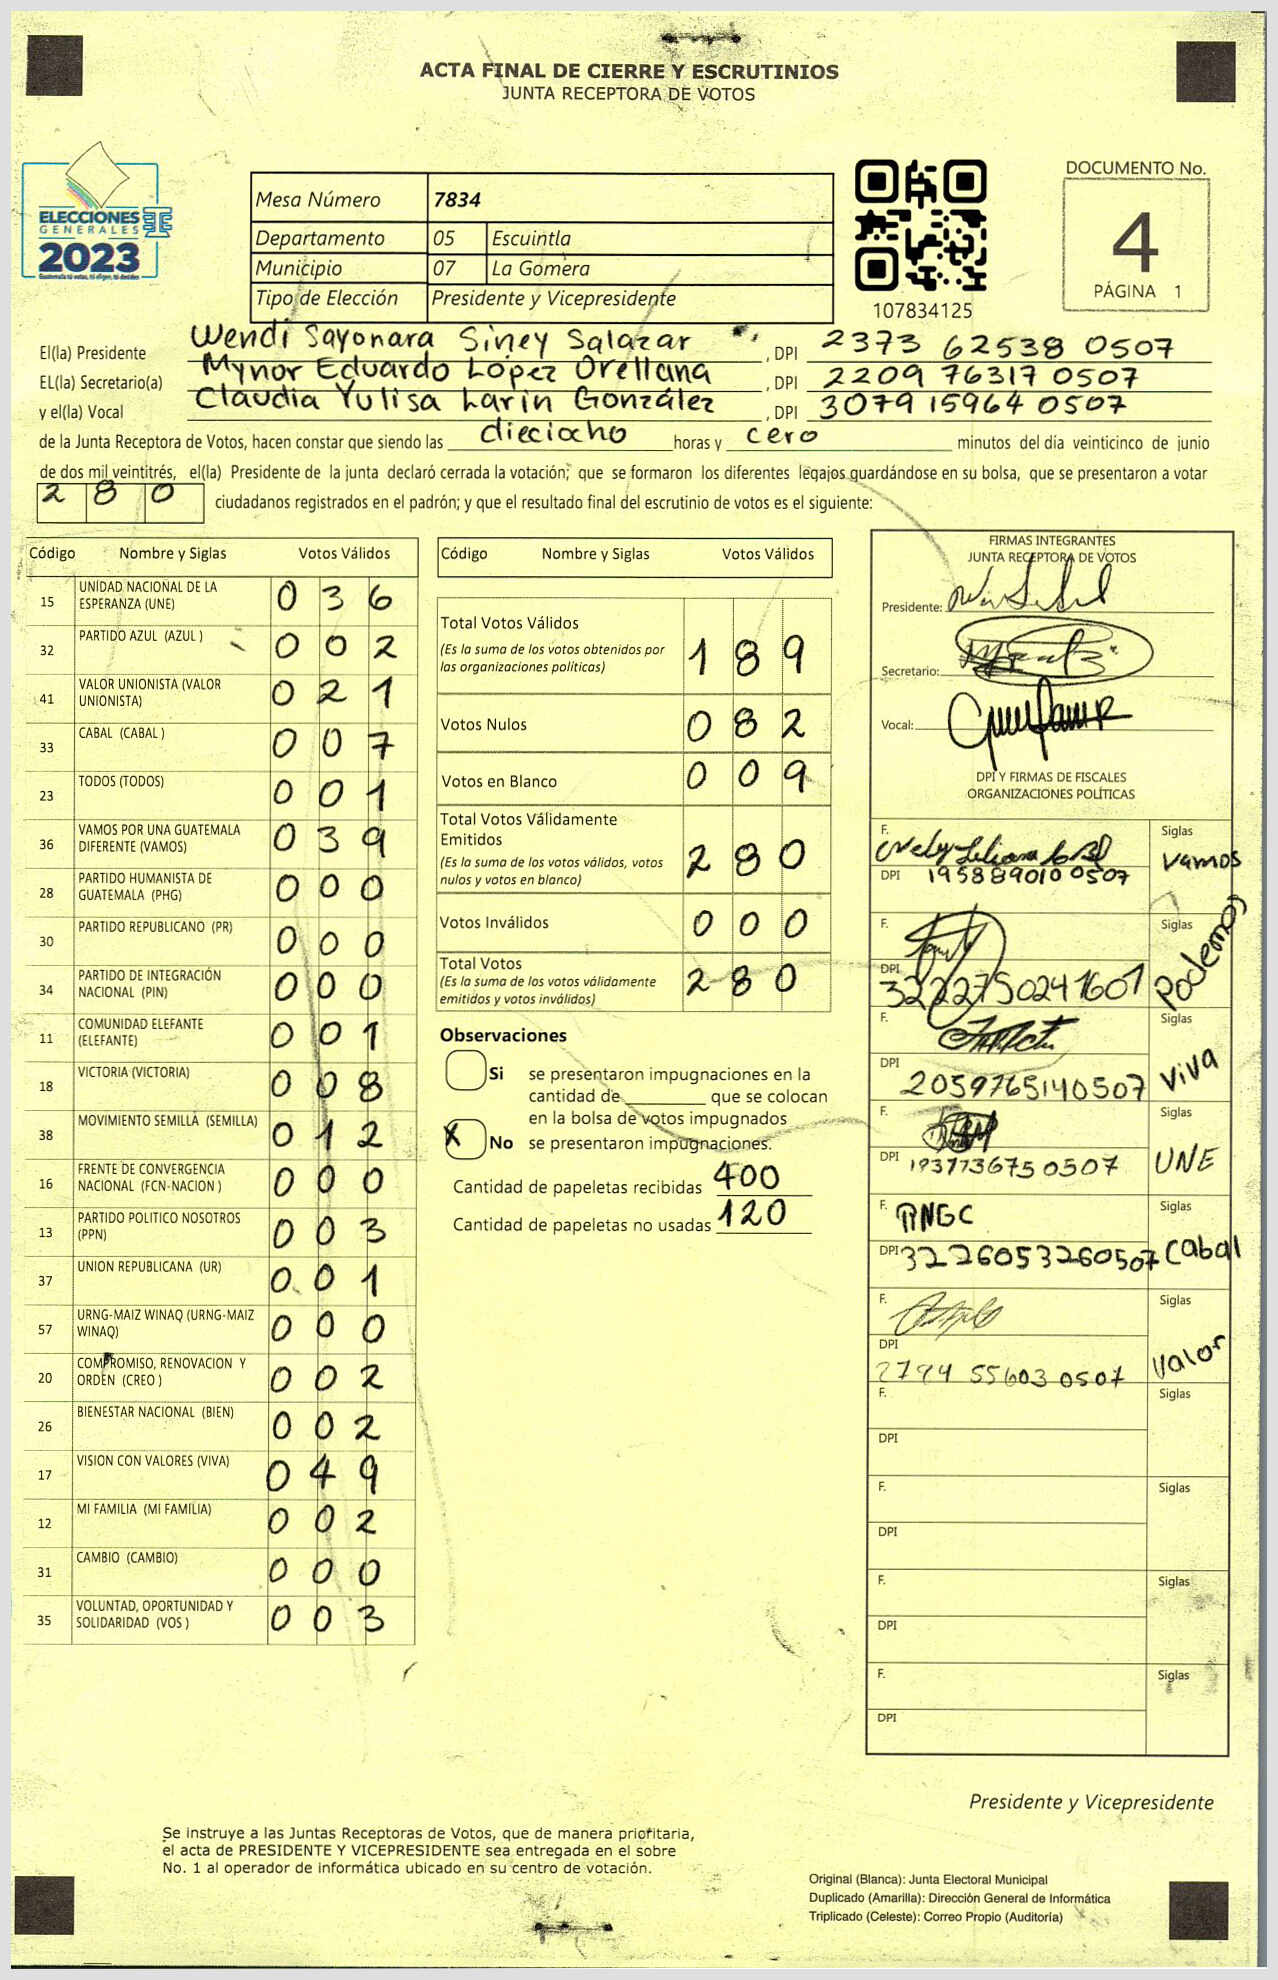 ACTA FINAL DE CIERRE Y ESCRUTINIOS
JUNTA RECEPTORA DE VOTOS
ELECCIONES
GENERALES
2023
Mesa Número 7834
Departamento 05 Escuintla
Municipio 07 La Gomera
Tipo de Elección Presidente y Vicepresidente
107834125
DOCUMENTO No.
4
PÁGINA 1
El(la) Presidente Wendi Sayonara Siney Salazar, DPI 2373 62538 0507
EL(la) Secretario(a) Mynor Eduardo López Orellana, DPI 2209 76317 0507
y el(la) Vocal Claudia Yulisa Larin González, DPI 3079 15964 0507
de la Junta Receptora de Votos, hacen constar que siendo las dieciocho horas y cero minutos del día veinticinco de junio
de dos mil veintitrés, el(la) Presidente de la junta declaró cerrada la votación; que se formaron los diferentes legajos guardándose en su bolsa, que se presentaron a votar
280 ciudadanos registrados en el padrón; y que el resultado final del escrutinio de votos es el siguiente:
Código Nombre y Siglas Votos Válidos
15 UNIDAD NACIONAL DE LA ESPERANZA (UNE) 036
32 PARTIDO AZUL (AZUL ) 002
41 VALOR UNIONISTA (VALOR UNIONISTA) 021
33 CABAL (CABAL ) 007
23 TODOS (TODOS) 001
36 VAMOS POR UNA GUATEMALA DIFERENTE (VAMOS) 039
28 PARTIDO HUMANISTA DE GUATEMALA (PHG) 000
30 PARTIDO REPUBLICANO (PR) 000
34 PARTIDO DE INTEGRACIÓN NACIONAL (PIN) 000
11 COMUNIDAD ELEFANTE (ELEFANTE) 001
18 VICTORIA (VICTORIA) 008
38 MOVIMIENTO SEMILLA (SEMILLA) 012
16 FRENTE DE CONVERGENCIA NACIONAL (FCN-NACION ) 000
13 PARTIDO POLITICO NOSOTROS (PPN) 003
37 UNION REPUBLICANA (UR) 001
57 URNG-MAIZ WINAQ (URNG-MAIZ WINAQ) 000
20 COMPROMISO, RENOVACION Y ORDEN (CREO ) 002
26 BIENESTAR NACIONAL (BIEN) 002
17 VISION CON VALORES (VIVA) 049
12 MI FAMILIA (MI FAMILIA) 002
31 CAMBIO (CAMBIO) 000
35 VOLUNTAD, OPORTUNIDAD Y SOLIDARIDAD (VOS ) 003
Código Nombre y Siglas Votos Válidos
Total Votos Válidos 189
(Es la suma de los votos obtenidos por
las organizaciones políticas)
Votos Nulos 082
Votos en Blanco 009
Total Votos Válidamente
Emitidos 280
(Es la suma de los votos válidos, votos
nulos y votos en blanco)
Votos Inválidos 000
Total Votos 280
(Es la suma de los votos válidamente
emitidos y votos inválidos)
Observaciones
Si se presentaron impugnaciones en la
cantidad de ________ que se colocan
en la bolsa de votos impugnados
X No se presentaron impugnaciones.
Cantidad de papeletas recibidas 400
Cantidad de papeletas no usadas 120
FIRMAS INTEGRANTES
JUNTA RECEPTORA DE VOTOS
Presidente:
Secretario:
Vocal:
DPI Y FIRMAS DE FISCALES
ORGANIZACIONES POLÍTICAS
F. Siglas Vamos
DPI 195889010 0507
F. Siglas Podemos
DPI 3222750241601
F. Siglas Viva
DPI 2059765140507
F. Siglas UNE
DPI 193773675 0507
F. RNGC Siglas Cabal
DPI 3226053260507
F. Siglas Valor
DPI 2794 55603 0507
F. Siglas
DPI
F. Siglas
DPI
F. Siglas
DPI
F. Siglas
DPI
Presidente y Vicepresidente
Se instruye a las Juntas Receptoras de Votos, que de manera prioritaria,
el acta de PRESIDENTE Y VICEPRESIDENTE sea entregada en el sobre
No. 1 al operador de informática ubicado en su centro de votación.
Original (Blanca): Junta Electoral Municipal
Duplicado (Amarilla): Dirección General de Informática
Triplicado (Celeste): Correo Propio (Auditoría)